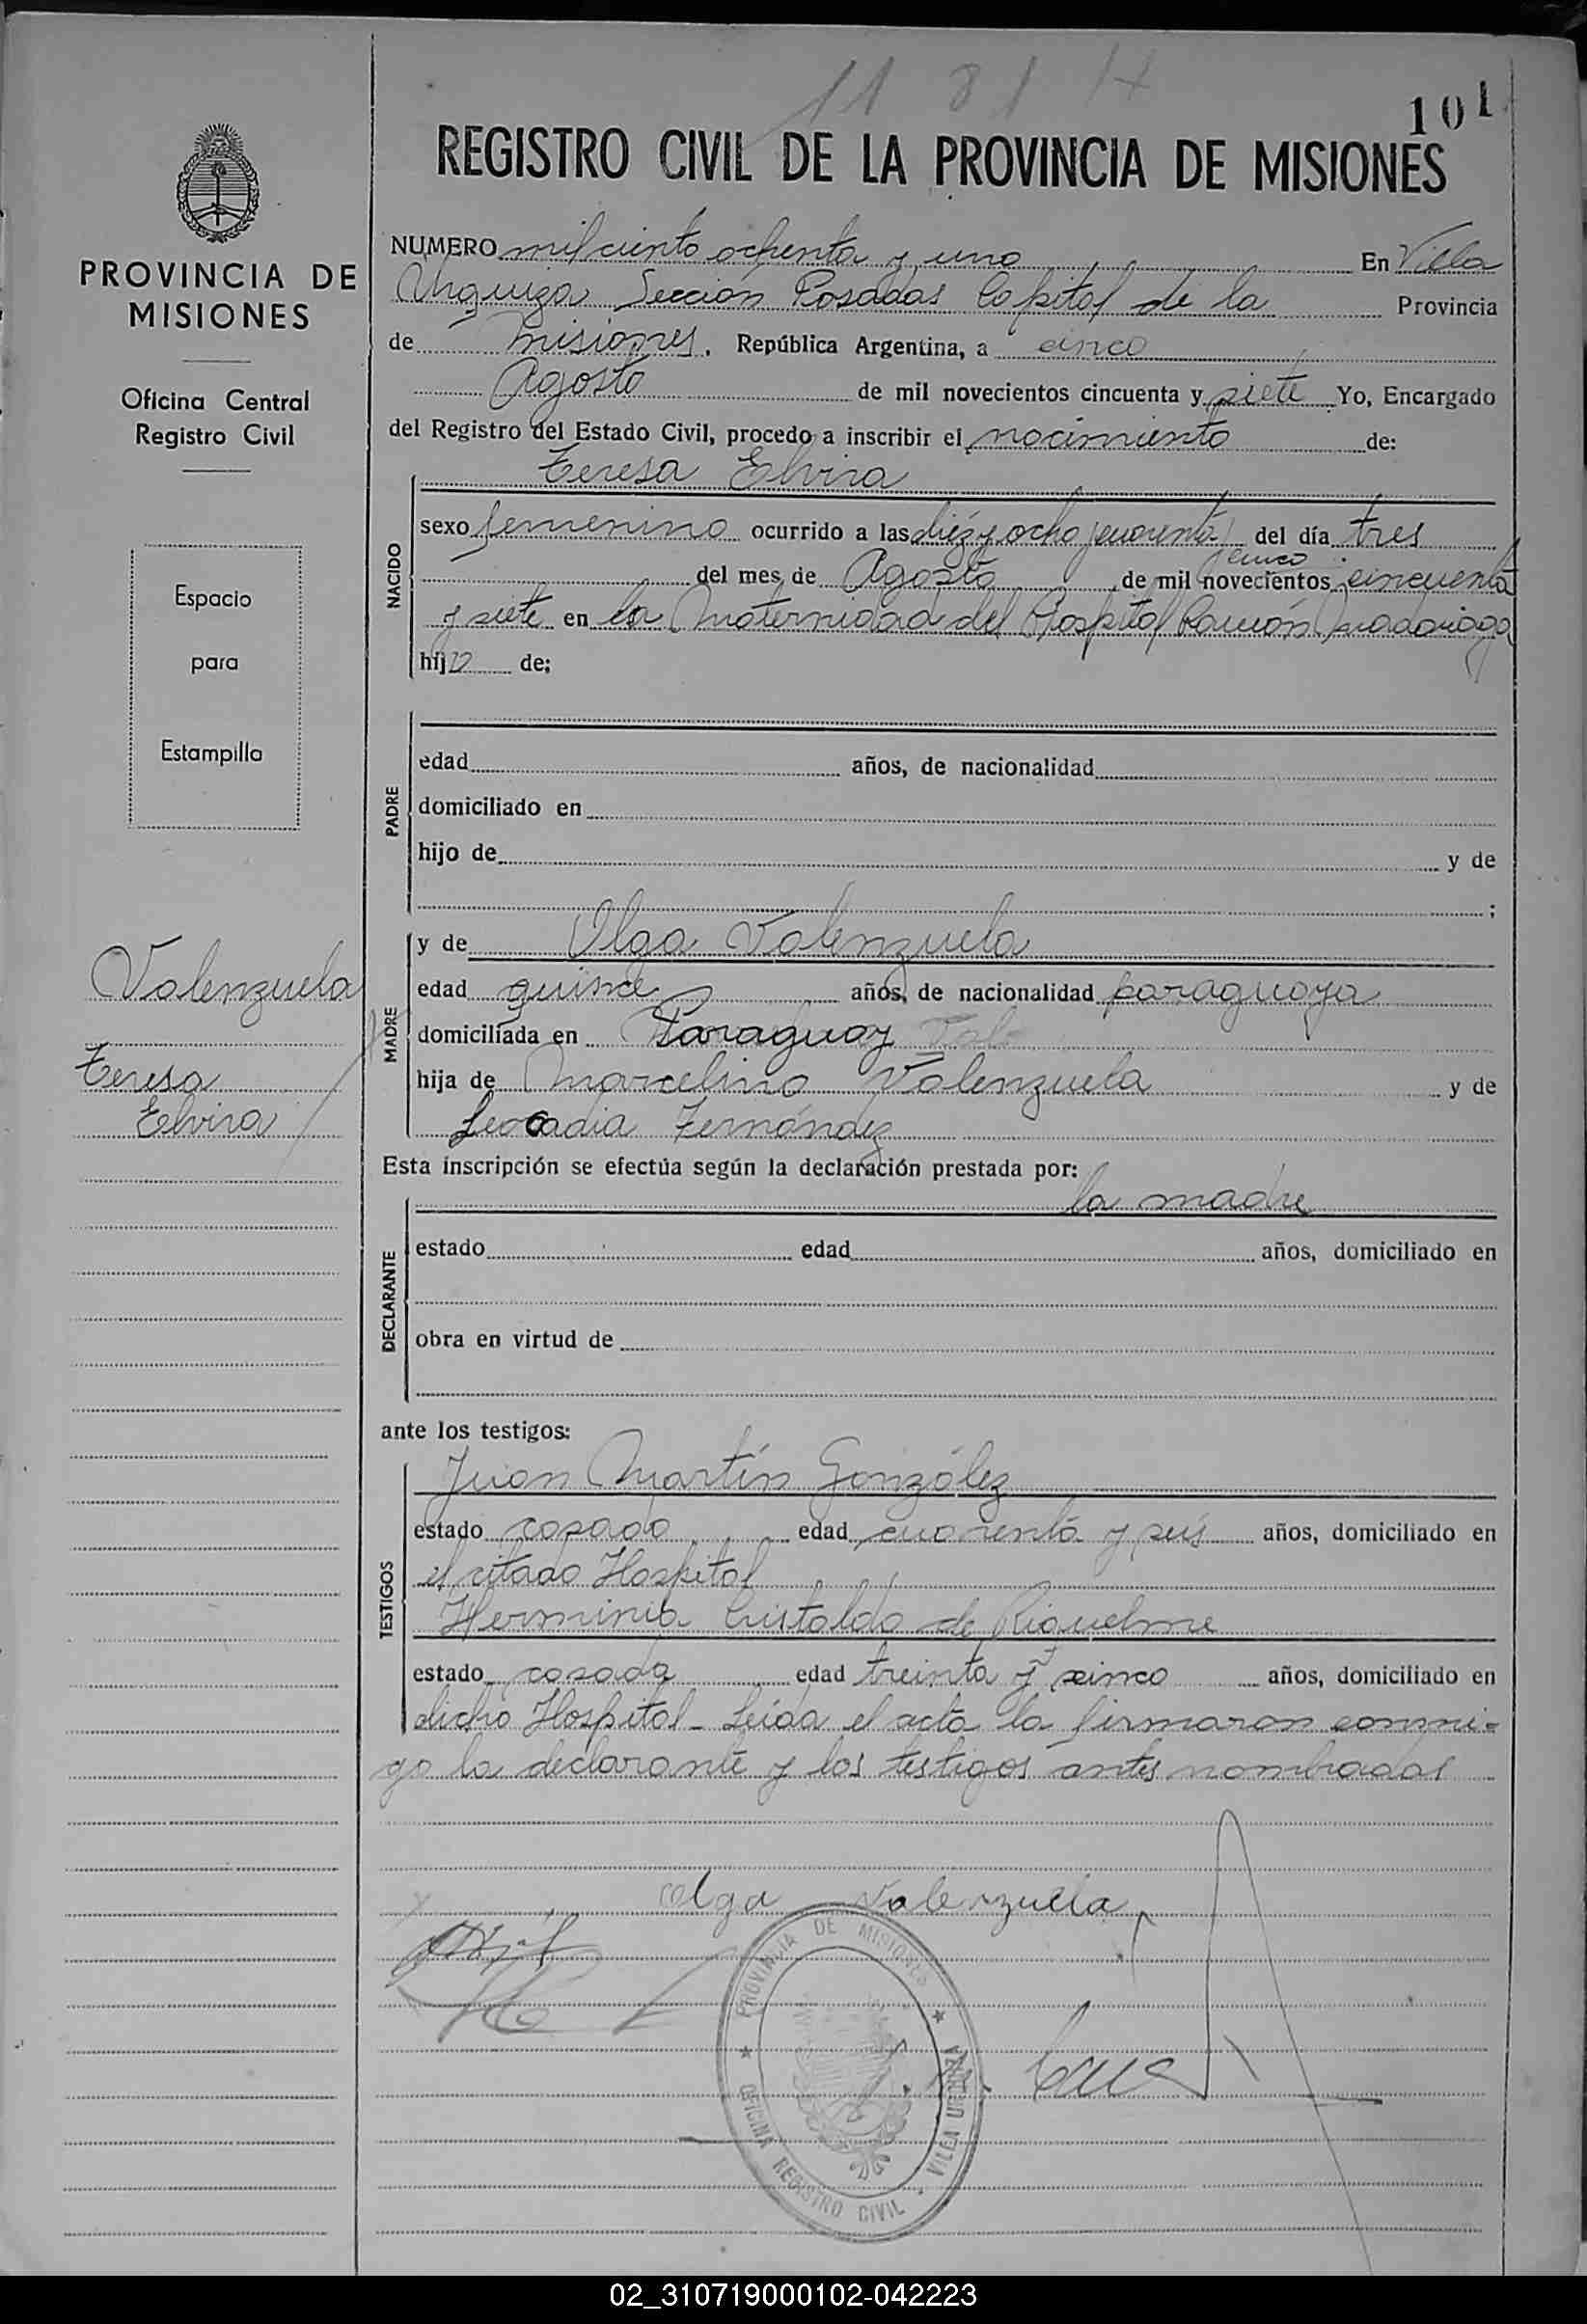 11 81 H
101
REGISTRO CIVIL DE LA PROVINCIA DE MISIONES
PROVINCIA DE
MISIONES
Oficina Central
Registro Civil
Espacio
para
Estampilla
Valenzuela
Teresa
Elvira
NUMERO mil ciento ochenta y uno En Villa
Urquiza Sección Posadas Capital de la Provincia
de Misiones, República Argentina, a cinco
Agosto de mil novecientos cincuenta y siete Yo, Encargado
del Registro del Estado Civil, procedo a inscribir el nacimiento de:
NACIDO
Teresa Elvira
sexo femenino ocurrido a las diez y ocho y cuarenta del día tres
cinco
del mes de Agosto de mil novecientos cincuenta
y siete en la Maternidad del Hospital Ramón Madariaga
hija de:
PADRE
edad años, de nacionalidad
domiciliado en
hijo de y de
;
MADRE
y de Olga Valenzuela
edad quince años, de nacionalidad paraguaya
domiciliada en Paraguay
hija de Marcelino Valenzuela y de
Leocadia Fernández
Esta inscripción se efectúa según la declaración prestada por:
la madre
DECLARANTE
estado edad años, domiciliado en
obra en virtud de
ante los testigos:
TESTIGOS
Juan Martín González
estado casado edad cuarenta y seis años, domiciliado en
el citado Hospital
Herminia Cristaldo de Riquelme
estado casada edad treinta y cinco años, domiciliado en
dicho Hospital - Leída el acta la firmaron conmi=
go la declarante y los testigos antes nombrados
olga Valenzuela
PROVINCIA DE MISIONES
OFICINA REGISTRO CIVIL - VILLA URQUIZA
02_310719000102-042223